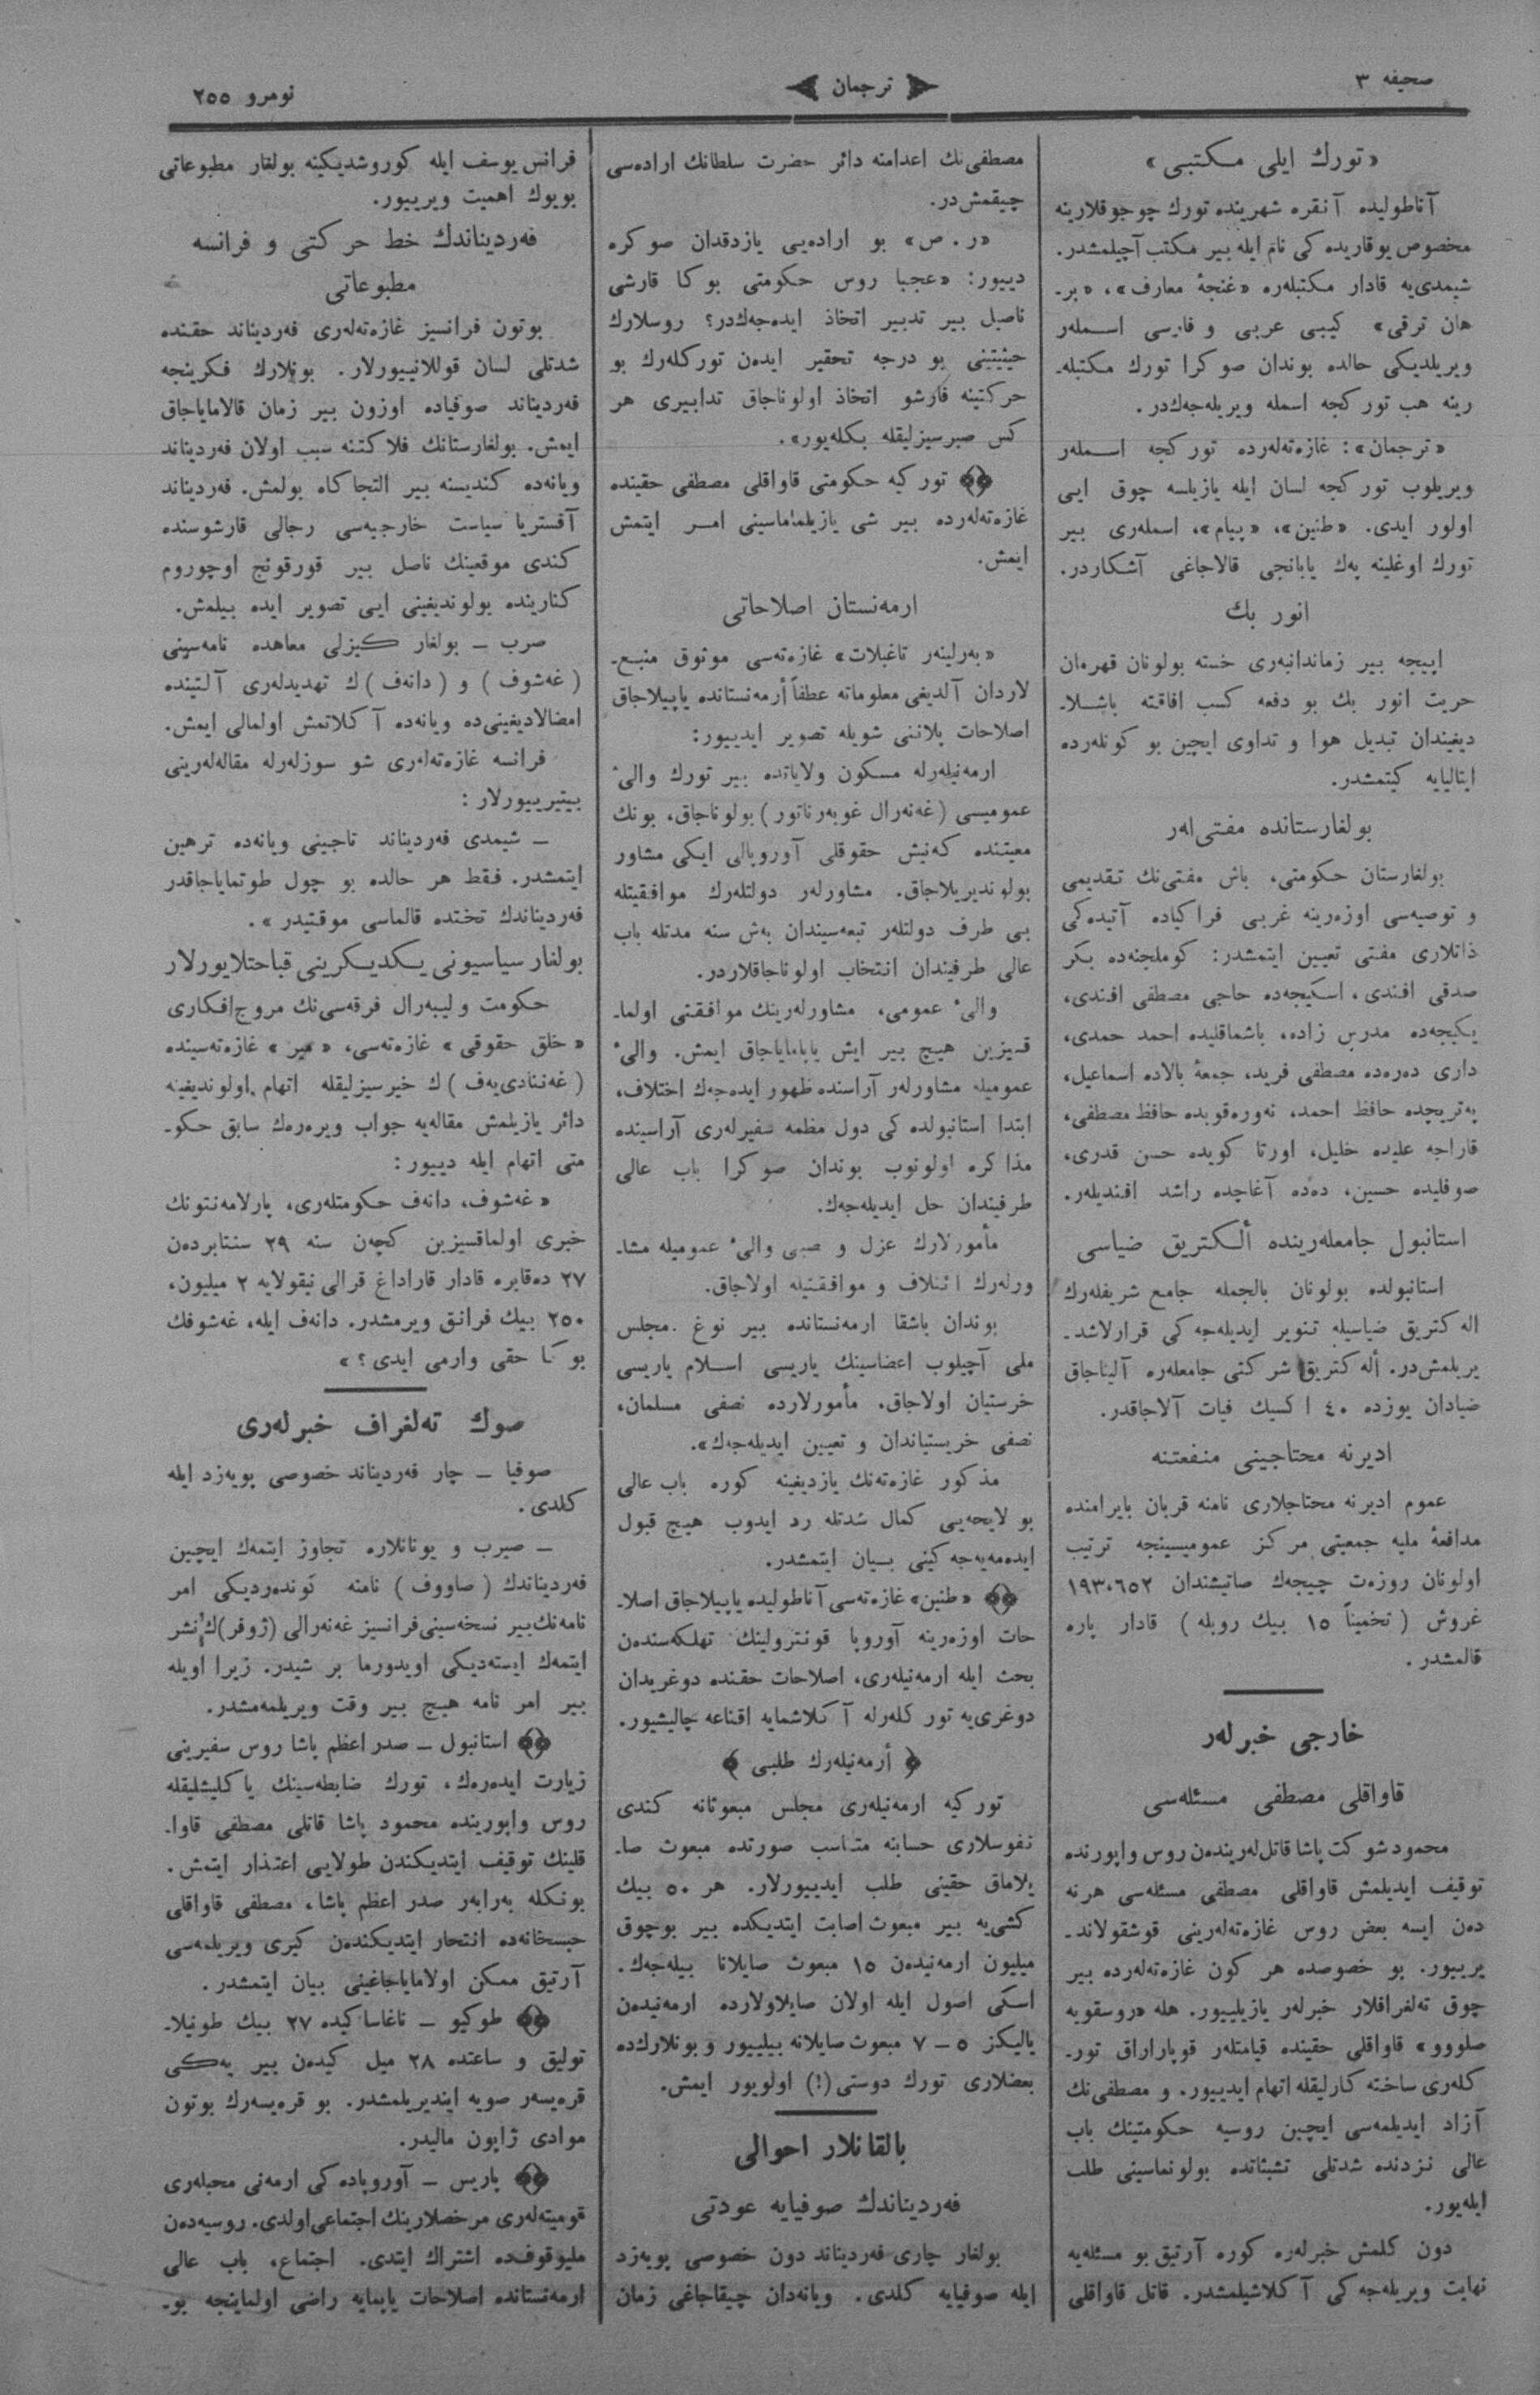 صحيفه ٣
ترجمان
نومرو ٢٥٥
«تورك ايلى مكتبى»
آناطوليده آنقره شهرينده تورك چوجوقلارينه
مخصوص يوقاريده كى نام ايله بير مكتب آچيلمشدر.
شيمدى‌يه قادار مكتبلەره «غنجهٔ معارف»، «بر-
هان ترقى» كيبى عربى و فارسى اسملەر
ويريلديكى حالده بوندان صوكرا تورك مكتبلە-
رينه هپ توركجه اسمله ويريلەجەك‌در.
«ترجمان»: غازەتەلەرده توركجه اسملەر
ويريلوب توركجه لسان ايله يازيلسه چوق ايى
اولور ايدى. «طنين»، «پيام»، اسملەرى بير
تورك اوغلينه پەك يابانجى قالاجاغى آشكاردر.
انور بك
اپيجه بير زماندانبەرى خسته بولونان قهرمان
حريت انور بك بو دفعه كسب افاقته باشلا-
ديغيندان تبديل هوا و تداوى ايچين بو كونلەرده
ايتاليايه كيتمشدر.
بولغارستانده مفتى‌لەر
بولغارستان حكومتى، باش مفتى‌نك تقديمى
و توصيەسى اوزەرينه غربى فراكياده آتيده‌كى
ذاتلارى مفتى تعيين ايتمشدر: كوملجنەده بكر
صدقى افندى، اسكيجەده حاجى مصطفى افندى،
يكيجەده مدرس زاده، باشماقليده احمد حمدى،
دارى دەرەده مصطفى فريد، جمعهٔ بالاده اسماعيل،
پەتريچده حافظ احمد، نەورەقوبده حافظ مصطفى،
قاراجه عليده خليل، اورتا كويده حسن قدرى،
صوفليده حسين، دەده آغاچده راشد افنديلەر.
استانبول جامعلەرينده ألكتريق ضياسى
استانبولده بولونان بالجمله جامع شريفلەرك
الەكتريق ضياسيله تنوير ايديلەجەكى قرارلاشد-
يريلمش‌در. ألەكتريق شركتى جامعلەره آليناجاق
ضيادان يوزده ٤٠ اكسيك فيات آلاجاقدر.
اديرنه محتاجينى منفعتنه
عموم اديرنه محتاجلارى نامنه قربان بايرامنده
مدافعهٔ مليه جمعيتى مركز عموميسينجه ترتيب
اولونان روزەت چيچەك صاتيشندان ١٩٣،٦٥٢
غروش (تخميناً ١٥ بيك روبله) قادار پاره
قالمشدر.
خارجى خبرلەر
قاواقلى مصطفى مسئلەسى
محمود شوكت پاشا قاتل‌لەريندەن روس واپورنده
توقيف ايديلمش قاواقلى مصطفى مسئلەسى هرنه
دەن ايسه بعض روس غازەتەلەرينى قوشقولاند-
يرييور. بو خصوصده هر كون غازەتەلەرده بير
چوق تەلغرافلار خبرلەر يازيلييور. هله «روسقويه
صلووو» قاواقلى حقينده قيامتلەر قوپاراراق تور-
كلەرى ساخته كارليقله اتهام ايدييور. و مصطفى‌نك
آزاد ايديلمەسى ايچين روسيه حكومتينك باب
عالى نزدنده شدتلى تشبثاتده بولونماسينى طلب
ايلەيور.
دون كلمش خبرلەره كوره آرتيق بو مسئلەيه
نهايت ويريلەجەكى آكلاشيلمشدر. قاتل قاواقلى
مصطفى‌نك اعدامنه دائر حضرت سلطانك ارادەسى
چيقمش‌در.
«ر. ص» بو ارادەيى يازدقدان صوكره
دييور: «عجبا روس حكومتى بوكا قارشى
ناصيل بير تدبير اتخاذ ايدەجەك‌در؟ روسلارك
حيثيتينى بو درجه تحقير ايدەن توركلەرك بو
حركتينه قارشو اتخاذ اولوناجاق تدابيرى هر
كس صبرسيزليقله بكلەيور».
توركيه حكومتى قاواقلى مصطفى حقينده
غازەتەلەرده بير شى يازيلماماسينى امر ايتمش
ايمش.
ارمەنستان اصلاحاتى
«بەرلينەر تاغبلات» غازەتەسى موثوق منبع-
لاردان آلديغى معلوماته عطفاً أرمەنستانده ياپيلاجاق
اصلاحات پلاننى شويله تصوير ايدييور:
ارمەنيلەرله مسكون ولاياتده بير تورك والىٔ
عموميسى (غەنەرال غوبەرناتور) بولوناجاق، بونك
معيتنده كەنيش حقوقلى آوروپالى ايكى مشاور
بولونديريلاجاق. مشاورلەر دولتلەرك موافقيتله
بى طرف دولتلەر تبعەسيندان بەش سنه مدتله باب
عالى طرفيندان انتخاب اولوناجاقلاردر.
والىٔ عمومى، مشاورلەرينك موافقتى اولما-
قسيزين هيچ بير ايش ياپاماياجاق ايمش. والىٔ
عموميله مشاورلەر آراسنده ظهور ايدەجەك اختلاف،
ابتدا استانبولده كى دول معظمه سفيرلەرى آراسينده
مذاكره اولونوب بوندان صوكرا باب عالى
طرفيندان حل ايديلەجەك.
مأمورلارك عزل و نصبى والىٔ عموميله مشا-
ورلەرك ائتلاف و موافقتيله اولاجاق.
بوندان باشقا ارمەنستانده بير نوع مجلس
ملى آچيلوب اعضاسينك ياريسى اسلام ياريسى
خرستيان اولاجاق. مأمورلارده نصفى مسلمان،
نصفى خريستياندان و تعيين ايديلەجەك».
مذكور غازەتەنك يازديغينه كوره باب عالى
بو لايحەيى كمال شدتله رد ايدوب هيچ قبول
ايدەمەيەجەكينى بيان ايتمشدر.
«طنين» غازەتەسى آناطوليده ياپيلاجاق اصلا-
حات اوزەرينه آوروپا قونترولينك تهلكەسندەن
بحث ايله ارمەنيلەرى، اصلاحات حقنده دوغريدان
دوغرى‌يه توركلەرله آكلاشمايه اقناعه چاليشيور.
﴿ أرمەنيلەرك طلبى ﴾
توركيه ارمەنيلەرى مجلس مبعوثانه كندى
نفوسلارى حسابنه متناسب صورتده مبعوث صا-
يلاماق حقينى طلب ايدييورلار. هر ٥٠ بيك
كشى‌يه بير مبعوث اصابت ايتديكده بير بوچوق
ميليون ارمەنيدەن ١٥ مبعوث صايلانا بيلەجەك.
اسكى اصول ايله اولان صايلاولارده ارمەنيدەن
ياليكز ٥ – ٧ مبعوث صايلانه بيلييور و بونلارك‌ده
بعضلارى تورك دوستى (!) اولويور ايمش.
بالقانلار احوالى
فەرديناندك صوفيايه عودتى
بولغار چارى فەرديناند دون خصوصى پويەزد
ايله صوفيايه كلدى. ويانەدان چيقاجاغى زمان
فرانس يوسف ايله كوروشديكينه بولغار مطبوعاتى
بويوك اهميت ويرييور.
فەرديناندك خط حركتى و فرانسه
مطبوعاتى
بوتون فرانسيز غازەتەلەرى فەرديناند حقنده
شدتلى لسان قوللانييورلار. بونلارك فكرينجه
فەرديناند صوفياده اوزون بير زمان قالاماياجاق
ايمش. بولغارستانك فلاكتنه سبب اولان فەرديناند
ويانەده كنديسنه بير التجاكاه بولمش. فەرديناند
آفستريا سياست خارجيەسى رجالى قارشوسنده
كندى موقعينك ناصل بير قورقونج اوچوروم
كنارينده بولونديغينى ايى تصوير ايده بيلمش.
صرب – بولغار كيزلى معاهده نامەسينى
(غەشوف) و (دانەف)ك تهديدلەرى آلتينده
امضالاديغينى‌ده ويانەده آكلاتمش اولمالى ايمش.
فرانسه غازەتەلەرى شو سوزلەرله مقالەلەرينى
بيتيرييورلار:
– شيمدى فەرديناند تاجينى ويانەده ترهين
ايتمشدر. فقط هر حالده بو چول طوتماياجاقدر
فەرديناندك تختده قالماسى موقتيدر».
بولغار سياسيونى يكديكرينى قباحتلايورلار
حكومت وليبەرال فرقەسى‌نك مروج افكارى
«خلق حقوقى» غازەتەسى، «مير» غازەتەسينده
(غەننادى‌يەف)ك خيرسيزليقله اتهام اولونديغينه
دائر يازيلمش مقالەيه جواب ويرەرەك سابق حكو-
متى اتهام ايله دييور:
«غەشوف، دانەف حكومتلەرى، پارلامەنتونك
خبرى اولماقسيزين كچەن سنه ٢٩ سنتابردەن
٢٧ دەقابره قادار قاراداغ قرالى نيقولايه ٢ ميليون،
٢٥٠ بيك فرانق ويرمشدر. دانەف ايله، غەشوفك
بوكا حقى وارمى ايدى؟»
صوك تەلغراف خبرلەرى
صوفيا – چار فەرديناند خصوصى پويەزد ايله
كلدى.
– صيرب و يونانلاره تجاوز ايتمەك ايچين
فەرديناندك (صاووف) نامنه كوندەرديكى امر
نامەنك بير نسخەسينى فرانسيز غەنەرالى (ژوفر)ك نشر
ايتمەك ايستەديكى اويدورما بر شيدر. زيرا اويله
بير امر نامه هيچ بير وقت ويريلمەمشدر.
استانبول – صدر اعظم پاشا روس سفيرينى
زيارت ايدەرەك، تورك ضابطەسينك ياكليشليقله
روس واپورينده محمود پاشا قاتلى مصطفى قاوا-
قلينك توقيف ايتديكندن طولايى اعتذار ايتمش.
بونكله بەرابەر صدر اعظم پاشا، مصطفى قاواقلى
حبسخانەده انتحار ايتديكندەن كيرى ويريلمەسى
آرتيق ممكن اولاماياجاغينى بيان ايتمشدر.
طوكيو – ناغاساكيده ٢٧ بيك طونيلا-
توليق و ساعتده ٢٨ ميل كيدەن بير يەكى
قرەيسەر صويه اينديريلمشدر. بو قرەيسەرك بوتون
موادى ژاپون ماليدر.
پاريس – آوروپاده كى ارمەنى محبلەرى
قوميتەلەرى مرخصلارينك اجتماعى اولدى. روسيەدەن
مليوقوف‌ده اشتراك ايتدى. اجتماع، باب عالى
ارمەنستانده اصلاحات ياپمايه راضى اولماينجه بو-